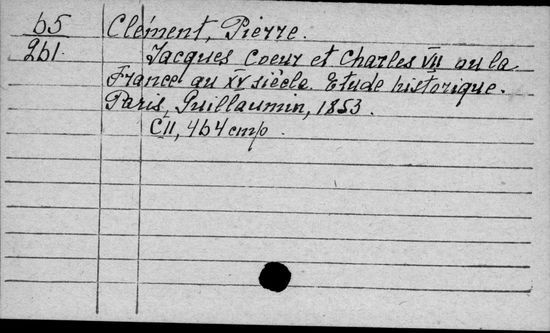 65 Clément, Pierre.
261. Jacques Coeur et Charles VII ou la
France au XV siècle. Etude historique.
Paris, Guillaumin, 1853.
CII, 464 стр.